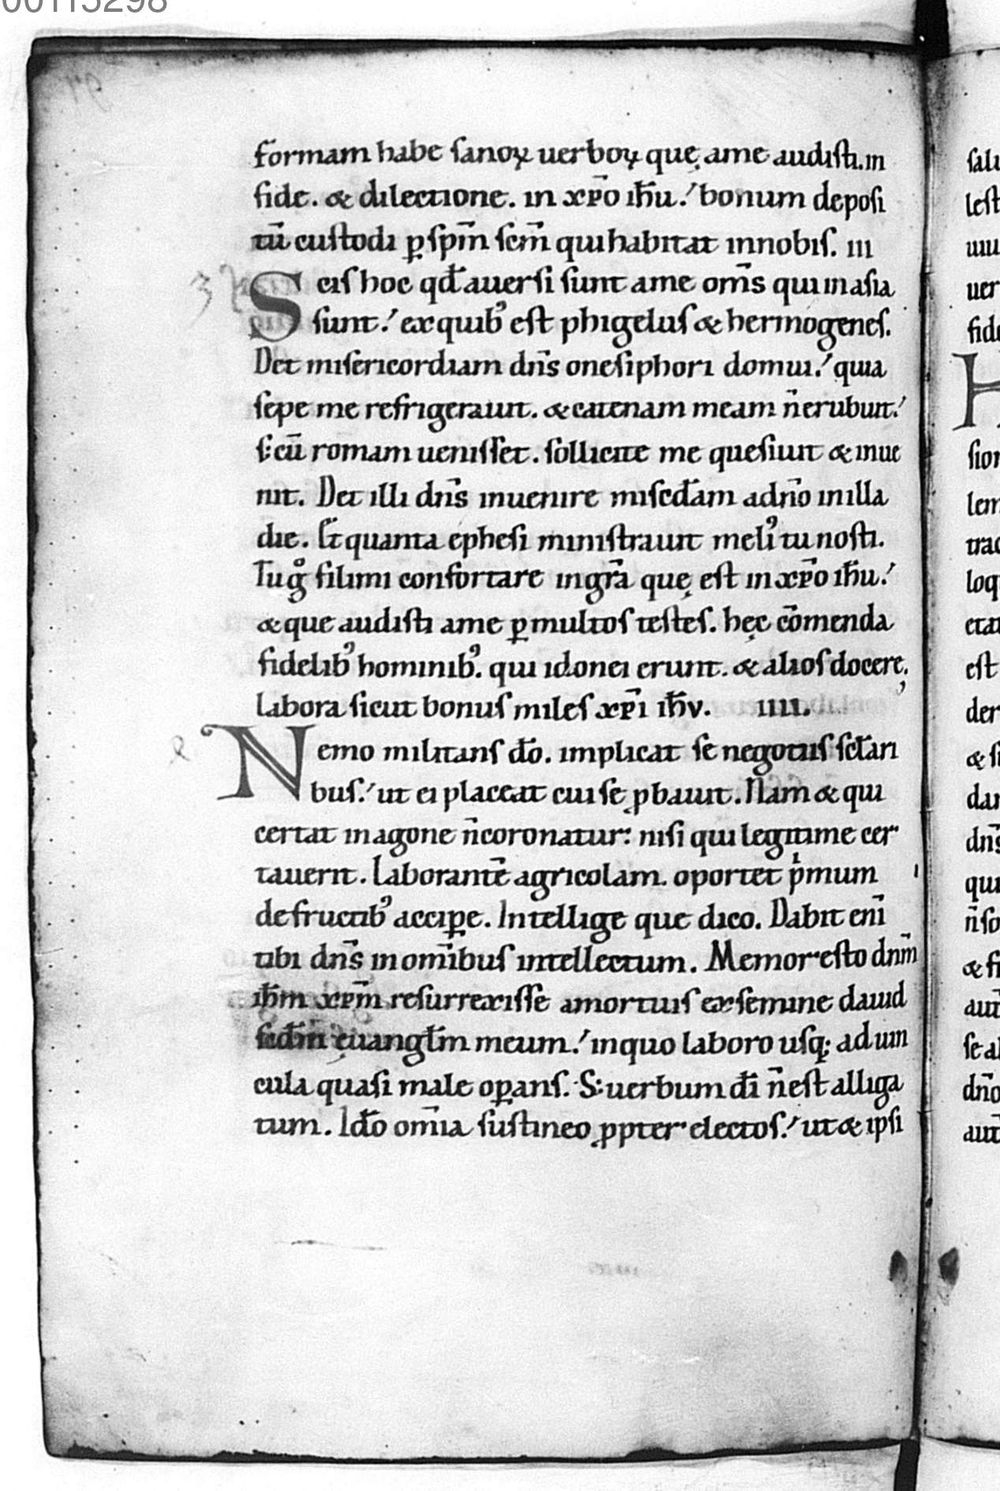 00115298
formam habe sanoꝝ uerboꝝ quę ame audisti. in
fide. & dilectione. in xp̄o ih̄u.' bonum deposi
tū custodi ꝑ sp̄m sc̄m qui habitat innobis. III
Scis hoc qđ auersi sunt ame om̄s qui inasia
sunt.' ex quib' est phigelus & hermogenes.
Det misericordiam dn̄s onesiphori domui.' quia
sepe me refrigerauit. & catenam meam n̄erubuit.'
s: cū romam uenisset. sollicite me quesiuit & inue
nit. Det illi dn̄s inuenire miscđam adn̄o inilla
die. Et quanta ephesi ministrauit meli' tu nosti.
Tu gͦ fili mi confortare in gr̄a quę est in xp̄o ih̄u.'
& que audisti ame ꝑ multos testes. hęc cōmenda
fidelib' hominib'. qui idonei erunt. & alios docere.
Labora sicut bonus miles xp̄i ih̄v. IIII.
Nemo militans đo. implicat se negotiis scłari
bus.' ut ei placeat cui se ꝓbauit. Nam & qui
certat in agone n̄coronatur: nisi qui legitime cer
tauerit. Laborantē agricolam. oportet pͥmum
defructib' acciꝑe. Intellige que dico. Dabit eni̅
tibi dn̄s in om̄ibus intellectum. Memor esto dn̄m
ih̄m xp̄m resurrexisse amortuis ex semine dauid
scđm ęuangłm meum.' inquo laboro usq; ad uin
cula quasi male oꝑans. S: uerbum đi n̄est alliga
tum. Iđo om̄ia sustineo ꝓpter electos.' ut & ipsi